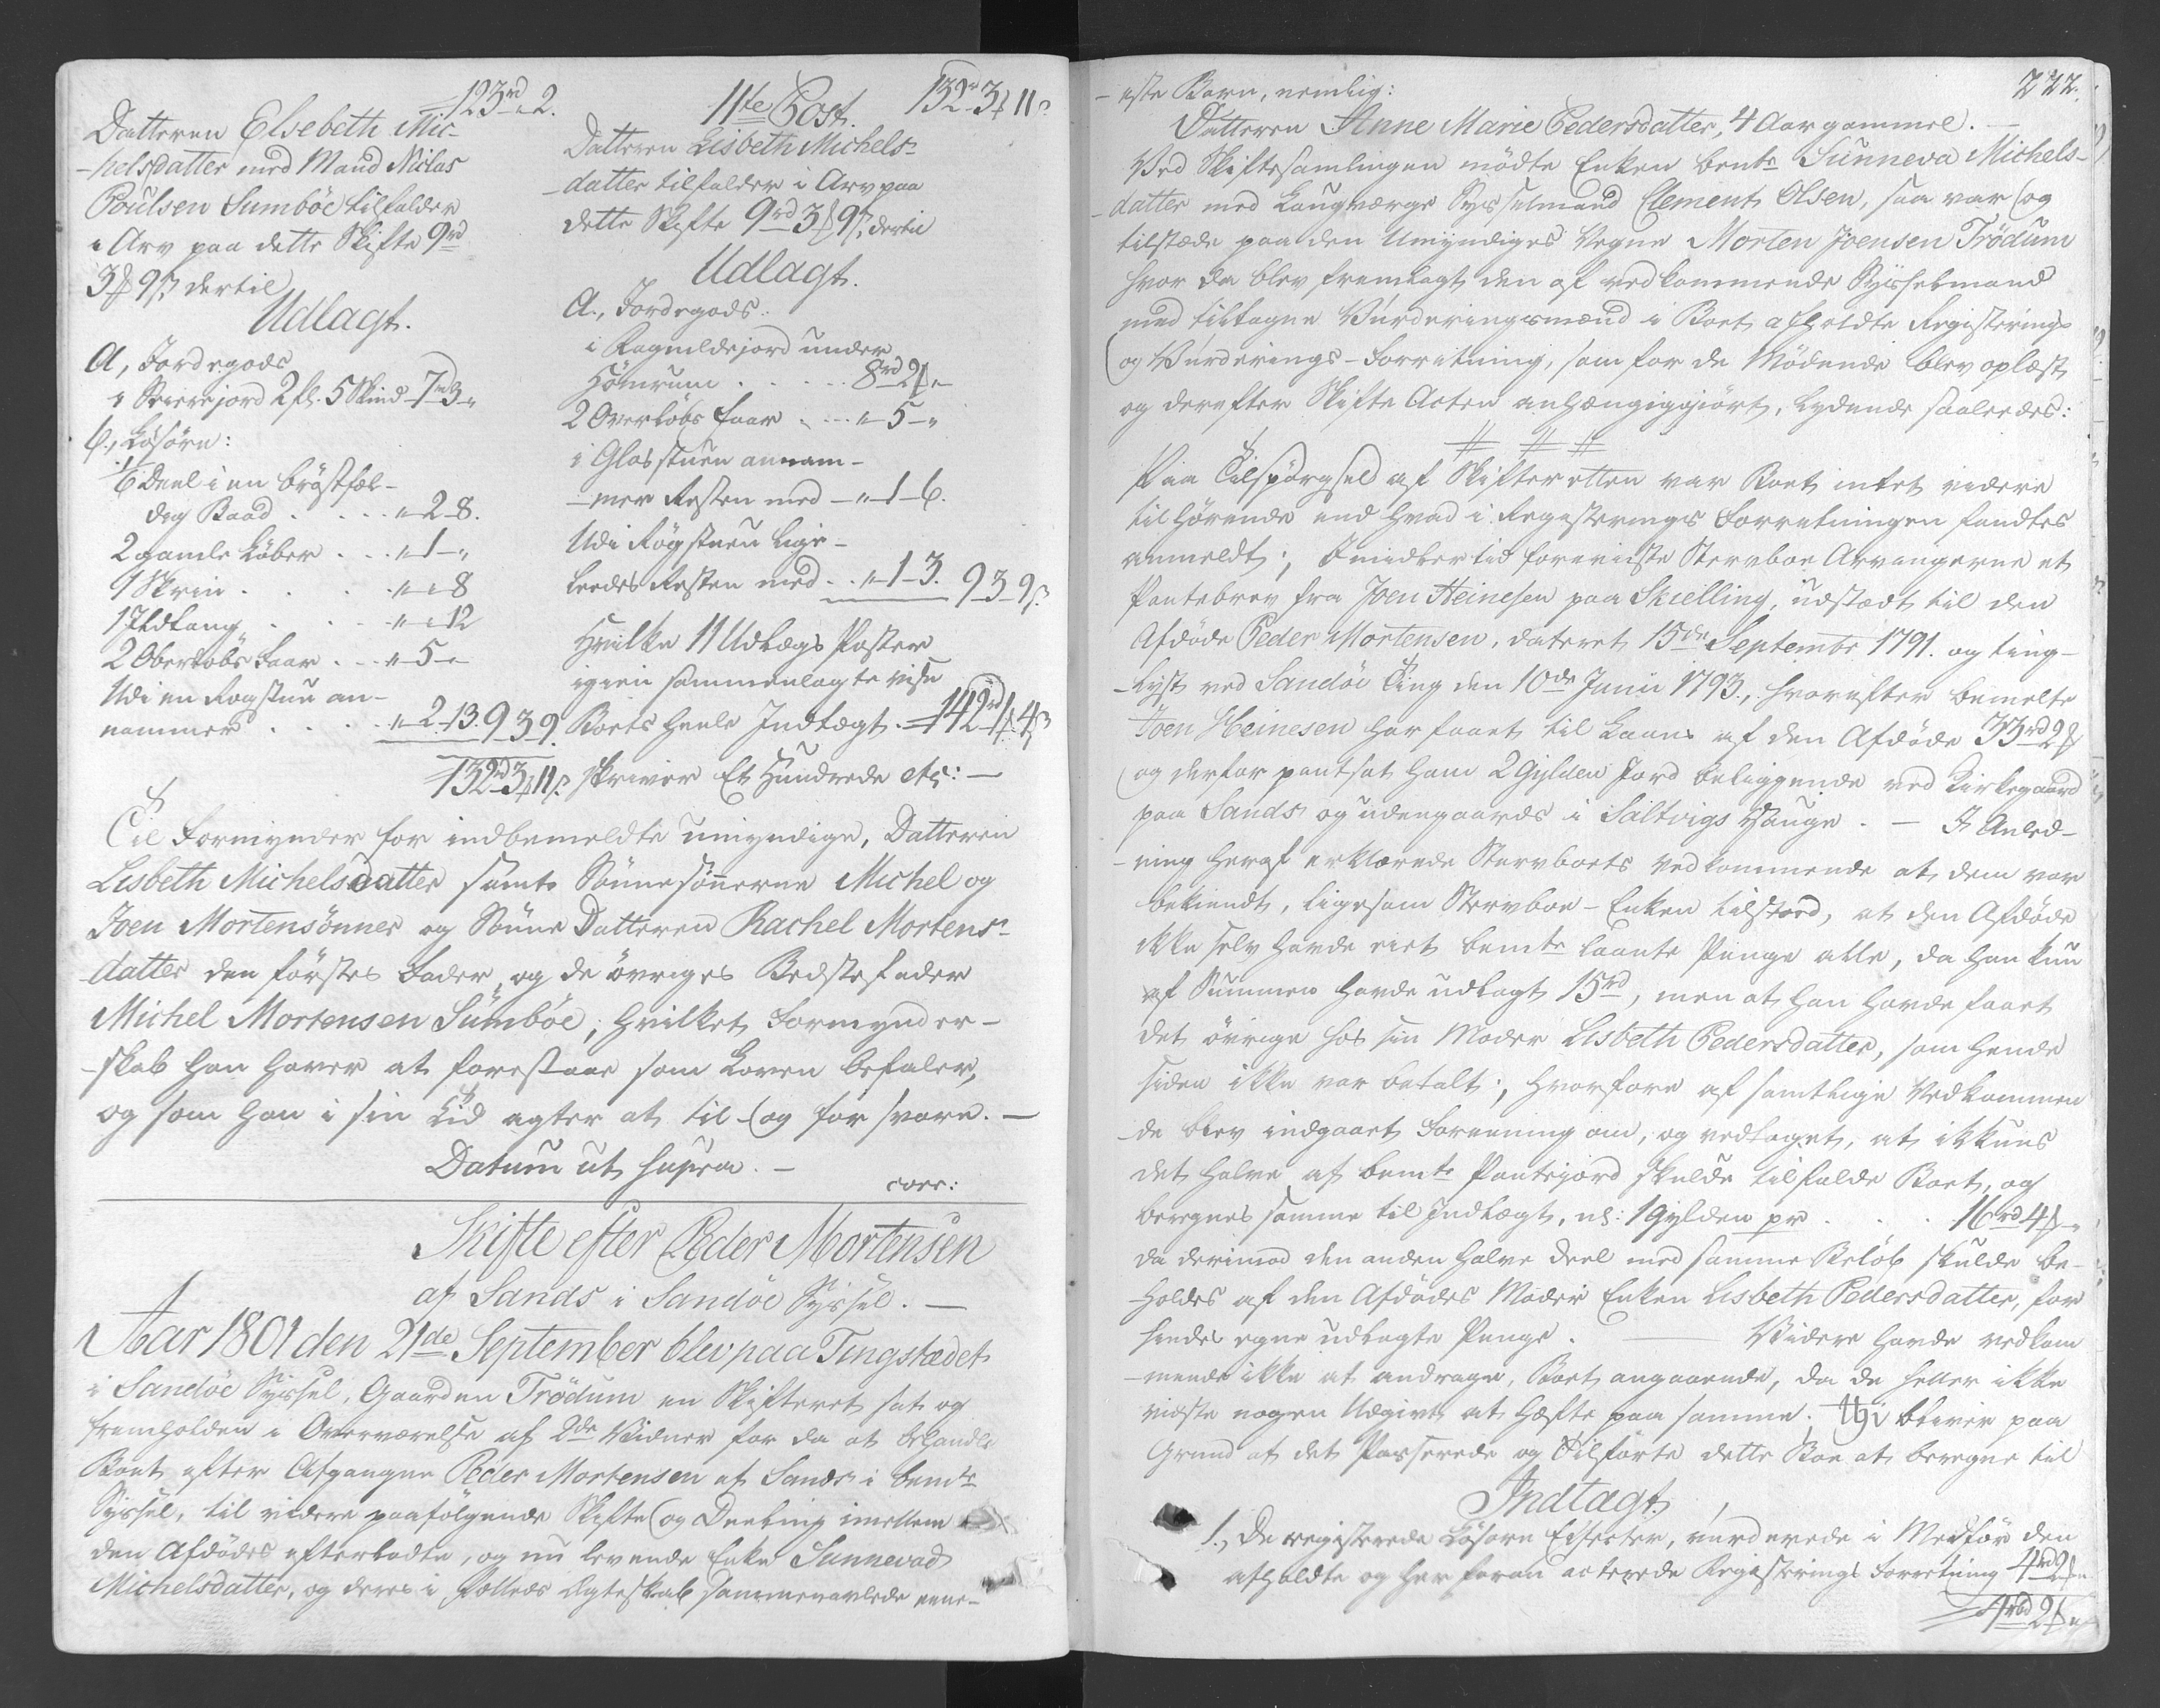 123rd " 2.
Datteren Elsebeth Mic-
-helsdatter med Mand Niclas
Poulsen Sumböe tilfalder
i Arv paa dette Skifte 9rd
3 ₰ 9 ß, dertil
Udlagt.
A, Jordegods
i Skierejord 2 fl. 5 Skind 7rd 3 "
b, Lösöre:
1/6 Deel i en bröstfæl-
dig Baad . . . " 2 8.
2 gamle Löber . . . " 1 "
1 Skrin . . . " " 8
1 Ildtang . . . " " 12
2 Oberlöbs Faar . . . " 5 "
Udi en Rogstue an-
nammer . . . " 2. 13. 9 3 9.
132rd 3 ₰ 11 ß
11te Post. 132rd 3 ₰ 11 ß
Datteren Lisbeth Michels-
-datter tilfalder i Arv paa
dette Skifte 9rd 3 ₰ 9 ß, dertil
Udlagt.
A., Jordegods:
i Ragnildejord under
Hömrum . . . . 8rd 2 ₰ "
2 Overlöbs Faar . . . " 5 "
i Glasstuen annam-
-mer Resten med " 1 6.
Udi Rögstuen lige-
ledes Resten med . . " 1 3. 9 3 9 ß
Hvilke 11 Udlægs Poster
igien sammenlagte vise
Boets heele Indtægt. 142rd 1 ₰ 4 ß
skriver Et Hundrede etc: —
Til Formynder for indbemeldte umyndige, Datteren
Lisbeth Michelsdatter samt Sönnesönnerne Michel og
Joen Mortensönner og Sönne Datteren Rachel Mortens-
datter den förstes Fader, og de övriges Bedstefader
Michel Mortensen Sumböe; hvilket Formynder-
-skab han haver at forestaae som Loven befaler,
og som han i sin Tid agter at til- og for svare. —
Datum ut supra. —
corr:
Skifte efter Peder Mortensen
af Sands i Sandöe Syssel. —
Aar 1801 den 21de September blev paa Tingstædet
i Sandöe Syssel, Gaarden Trödum en Skifteret sat og
fremholden i Overværelse af 2de Vidner for da at behandle
Boet efter Afgangne Peder Mortensen af Sands i bemte
Syssel, til videre paafölgende Skifte og Deeling imellem
den Afdödes efterladte, og nu levende Enke Sunnevad
Michelsdatter, og deres i fælleds Ægteskab sammenavlede eene-
222.
-ste Barn, nemlig:
Datteren Anne Marie Pedersdatter, 4 Aar gammel. —
Ved Skiftesamlingen mödte Enken bemte Sunneva Michels-
-datter med Laugværge Sysselmand Clement Olsen, saa var og
tilstæde paa den Umyndiges Vegne Morten Joensen Trödum
hvor da blev fremlagt den af vedkommende Sysselmand
med tiltagne Vurderingsmænd i Boet afholdte Registerings
og Vurderings-Forretning, som for de Mödende blev oplæst
og derefter Skifte Acten anhængiggiört, lydende saaledes:
# # #
Paa Tilspörgsel af Skifteretten var Boet intet videre
tilhörende end hvad i Registerings Forretningen fandtes
anmeldt; Imidlertid foreviiste Stervboe Arvingerne et
Pantebrev fra Joen Heinesen paa Skielling, udstædt til den
Afdöde Peder Mortensen, dateret 15de Septembr 1791. og ting-
-lyst ved Sandöe Ting den 10de Junii 1793., hvorefter bemelte
Joen Heinesen har faaet til Laans af den Afdöde 33rd 2 ₰
og derfor pantsat ham 2 Gylden Jord beliggende ved Kirkegaard
paa Sands og udengaards i Saltvigs Hauge. — I Anled-
-ning heraf erklærede Stervboets Vedkommende at dem var
bekiendt, ligesom Stervboe-Enken tilstoed, at den Afdöde
ikke selv havde eiet bemte laante Penge alle, da han kun
af Summen havde udlagt 15rd, men at han havde faaet
det övrige hos sin Moder Lisbeth Pedersdatter, som hende
siden ikke var betalt; hvorfore af samtlige Vedkommen
-de blev indgaaet Foreening om, og vedtaget, at ikkuns
det halve af bemte Pantejord skulde tilfalde Boet, og
beregnes samme til Indtægt, nl: 1 Gylden pr . . . 16rd 4 ₰ "
da derimod den anden halve Deel med samme Belöb skulde be-
-holdes af den Afdödes Moder Enken Lisbeth Pedersdatter, for
hendes egne udlagte Penge. — Videre havde vedkom
-mende ikke at andrage, Boet angaaende, da de heller ikke
vidste nogen Udgivt at hæfte paa samme; thi bliver paa
Grund af det Passerede og Tilförte dette Boe at beregne til
Indtægt.
1., De registerede Lösöre Effecter, vurderede i Medför den
afholdte og her foran acterede Registerings Forretning 4rd 2 ₰ "
4rd 2 ₰ "